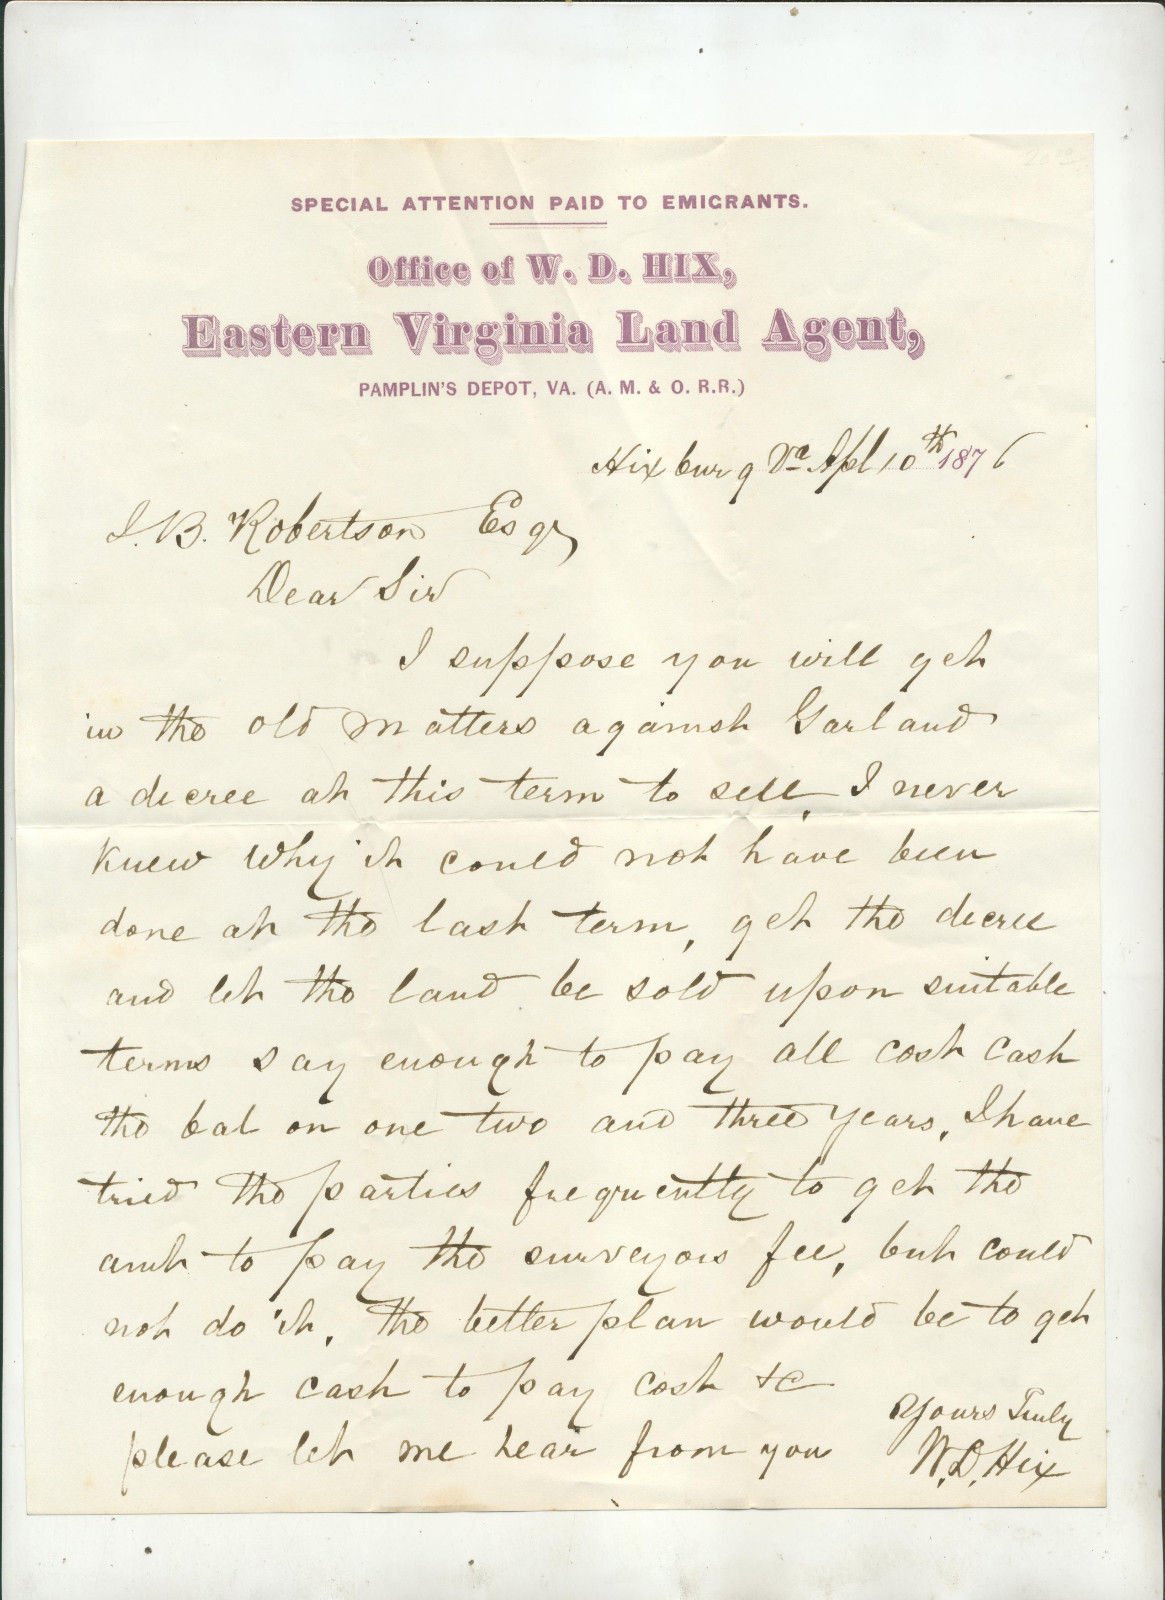 SPECIAL ATTENTION PAID TO EMIGRANTS.
Office of W. D. HIX,
Eastern Virginia Land Agent,
PAMPLIN'S DEPOT, VA. (A. M. & O. R.R.)
Hixburg Va Apl 10th 1876
J. B. Robertson Esqr
Dear Sir
I suppose you will get
in the old matters against Garland
a decree at this term to sell, I never
knew why it could not have been
done at the last term, get the decree
and let the land be sold upon suitable
terms say enough to pay all cost cash
the bal on one two and three years, I have
tried the parties frequently to get the
amt to pay the surveyors fee, but could
not do it, the better plan would be to get
enough cash to pay cost &C
please let me hear from you
Yours Truly
W. D. Hix